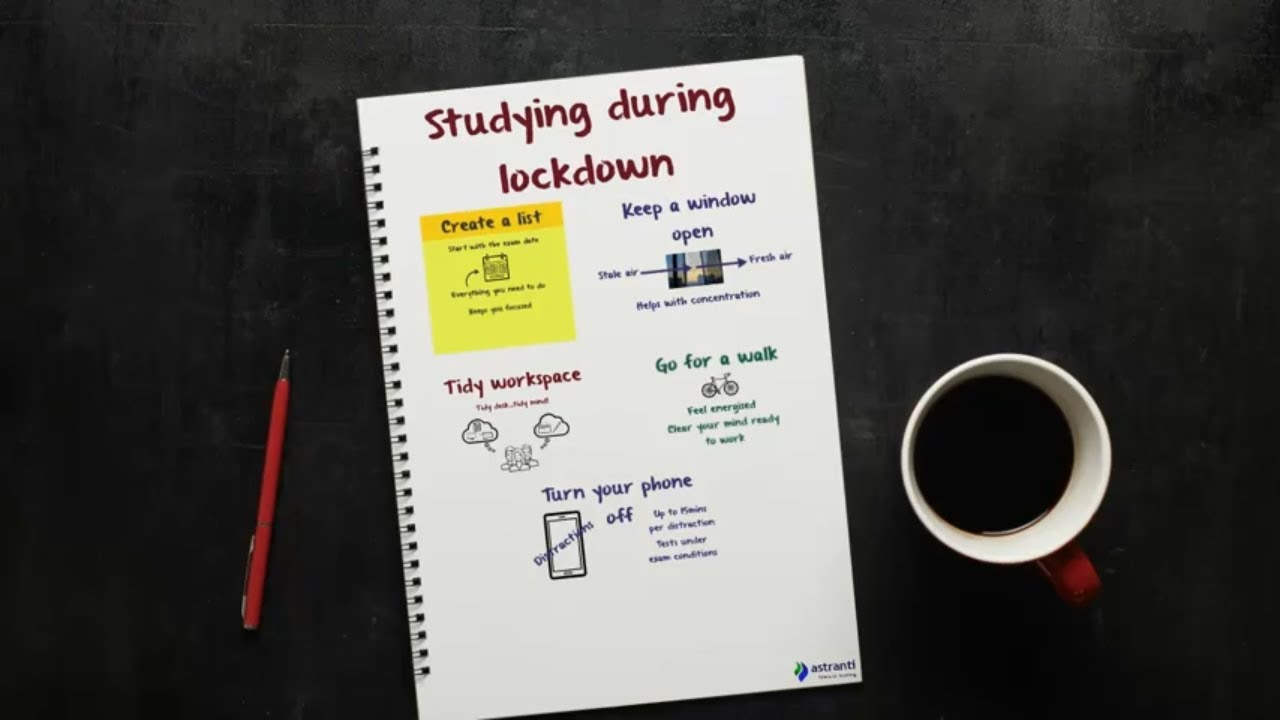 Studying during
lockdown
Create a list
Start with the exam date
Everything you need to do
Keeps you focused
Keep a window
open
Stale air
Fresh air
Helps with concentration
Tidy workspace
Tidy desk...tidy mind!
Go for a walk
Feel energised
Clear your mind ready
to work
Turn your phone
off
Distractions
Up to 15mins
per distraction
Tests under
exam conditions
astranti